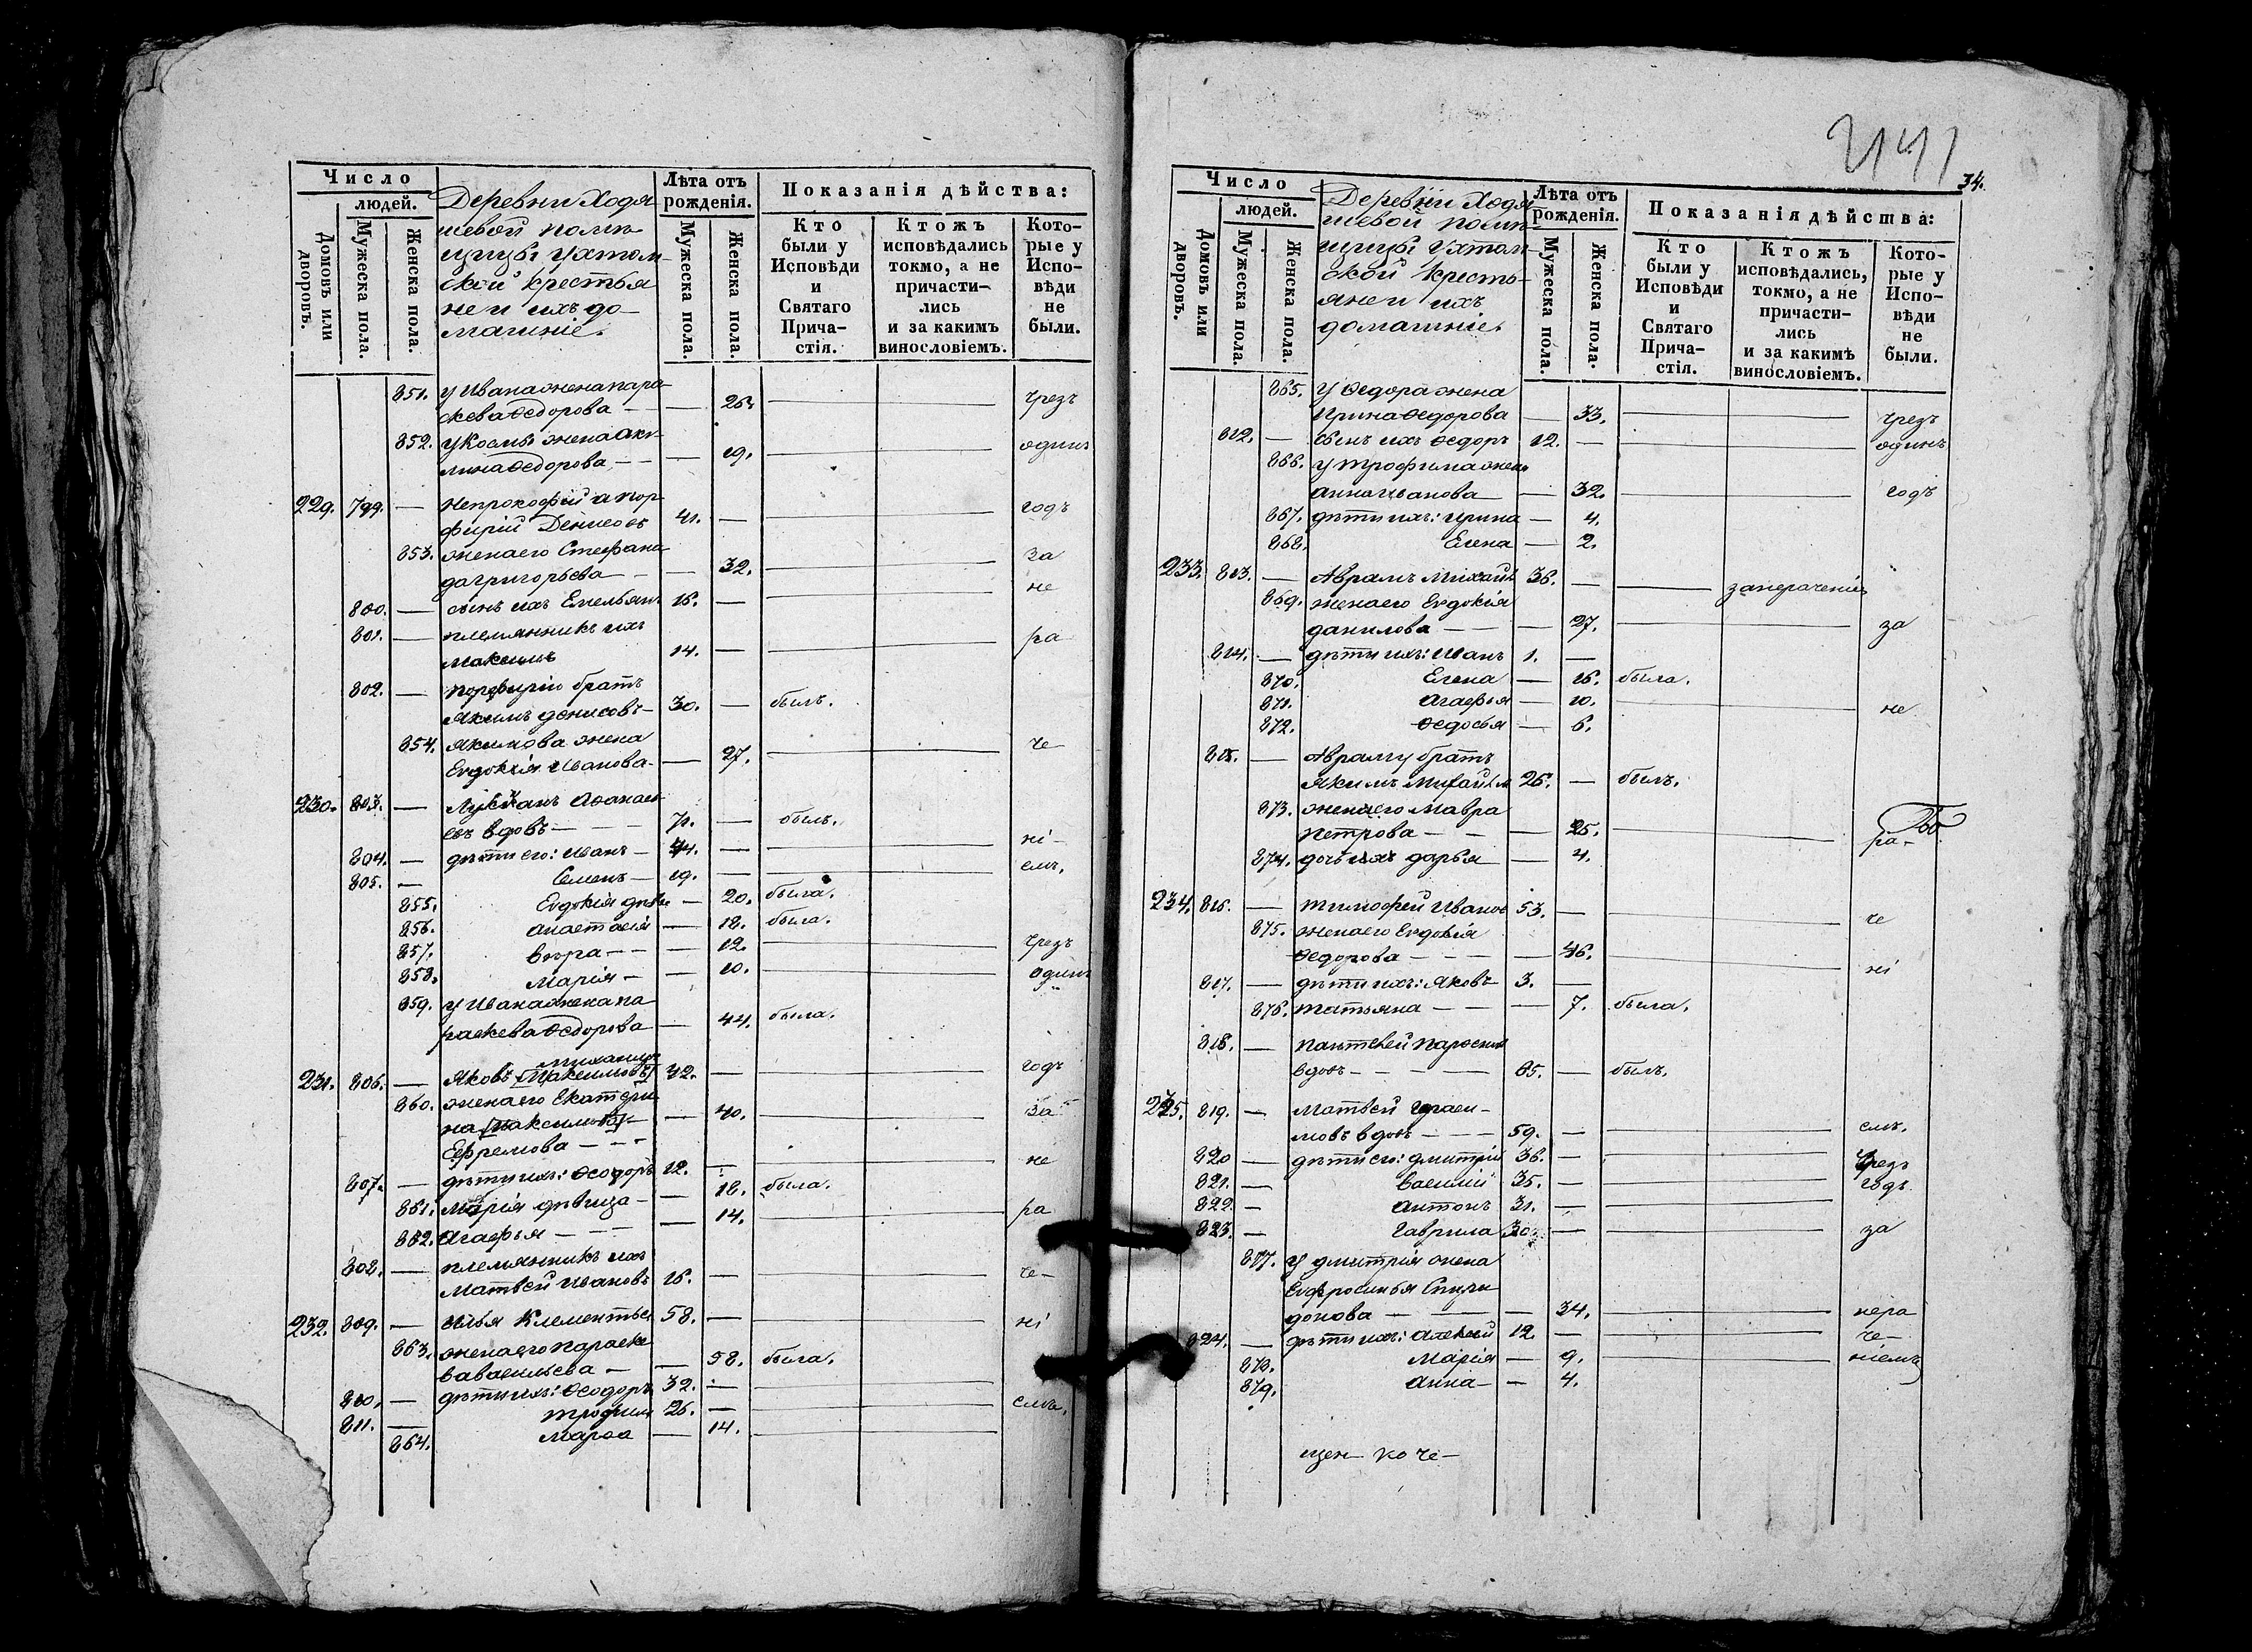 Число
людей.
Домовъ или дворовъ.
Мужеска пола.
Женска пола.
Деревни Ходя
шевой помѣ
щицы Ухтом
ской крестья
не и ихъ до
машніе.
Лѣта отъ
рожденія.
Мужеска пола.
Женска пола.
Показанія дѣйства:
Кто
были у
Исповѣди
и
Святаго
Прича-
стія.
Ктожъ
исповѣдались
токмо, а не
причасти-
лись
и за какимъ
винословіемъ.
Кото-
рые у
Испо-
вѣди
не
были.
851. у Ивана жена Пара
скева Ѳедорова 26. чрезъ
852. у Космы жена Аку
лина Ѳедорова 19. одинъ
229. 799. Непрокофій а Пор
фирій Денисовъ 41. годъ
853. жена его Стефани
да Григорьева 32. за
800. сынъ ихъ Емельянъ 16. не
801. племянникъ ихъ
Максимъ 14. ра
802. Порфирію братъ
Якимъ Денисовъ 30. былъ.
854. Якимова жена
Евдокія Иванова 27. че
230. 803. Лукіанъ Аѳанась
евъ вдовъ 71. былъ.
804. дѣти его: Иванъ 44. ні
805. Семенъ 19. емъ.
855. Евдокія 20. была.
856. Анастасія 18. была.
857. Вѣра 12. чрезъ
858. Марія 10. одинъ
859. у Ивана жена Па
раскева Ѳедорова 44. была.
Михаил
231. 806. Яковъ [Максимовъ] 42. годъ
860. жена его Екатери
на [Максимова] 40. за
Ефремова
807. дѣти ихъ: Ѳеодоръ 12. не
861. Марія дѣвица 18. была.
862. Агафья 14. ра
808. племянникъ ихъ
Матвей Ивановъ 16. че
232. 809. Илья Клементьев 58. ні
863. жена его Параске
ва Васильева 58. была.
810. дѣти ихъ: Ѳеодоръ 32.
811. Трофимъ 26. емъ.
864. Марѳа 14.
34.
Число
людей.
Домовъ или дворовъ.
Мужеска пола.
Женска пола.
Деревни Ходя
шевой помѣ
щицы Ухтом
ской кресть
яне и ихъ
домашніе.
Лѣта отъ
рожденія.
Мужеска пола.
Женска пола.
Показанія дѣйства:
Кто
были у
Исповѣди
и
Святаго
Прича-
стія.
Ктожъ
исповѣдались,
токмо, а не
причасти-
лись
и за какимъ
винословіемъ.
Кото-
рые у
Испо-
вѣди
не
были.
865. у Ѳедора жена
Ирина Ѳедорова 33. чрезъ
812. сынъ ихъ Ѳедоръ 12. одинъ
866. у Трофима жена
Анна Иванова 32. годъ
867. дѣти ихъ: Ирина 4.
868. Елена 2.
233. 813. Аврамъ Михайл 36.
869. жена его Евдокія
Данилова 27. за
814. дѣти ихъ: Иванъ 1.
870. Елена 16. была.
871. Агафья 10. не
872. Ѳедосья 6.
815. Авраму братъ
Якимъ Михайлъ 26. былъ.
873. жена его Мавра
Петрова 25. ра
874. дочь ихъ Дарья 4.
234. 816. Тимофей Ивановъ 53. че
875. жена его Евдокія
Ѳедорова 46. ні
817. дѣти ихъ: Яковъ 3.
876. Татьяна 7. была.
818.
вдовъ 65. былъ.
235. 819. Матвей
мовъ вдовъ 59. емъ.
820 дѣти его: Дмитрій 36. чрезъ
821. Василій 35. годъ
822. Антонъ 31.
823. Гаврила 30. за
877. у Дмитрія жена
Евфросинья Спири
донова 34. нера
824. дѣти ихъ: Алексей 12. че
878. Марія 9. ніемъ
879. Анна 4.